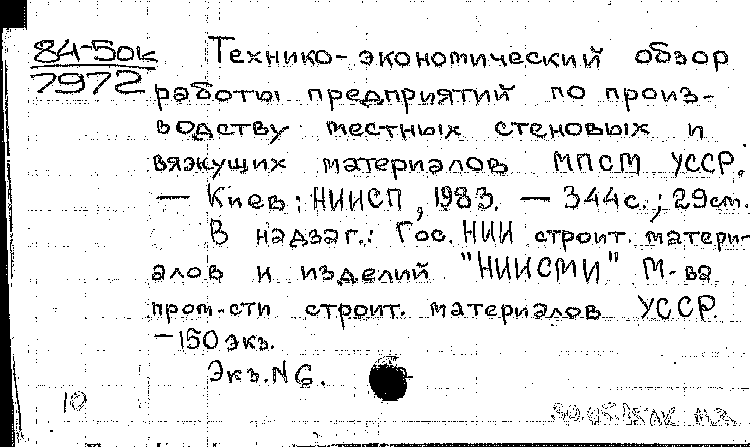 84-5ок
7972
Технико-экономический обзор
работы предприятий по произ-
водству местных стеновых и
вяжущих материалов МПСМ УССР.
— Киев: НИИСП, 1983. — 344с.; 29см.
В надзаг.: Гос. НИИ строит. матери-
алов и изделий "НИИСМИ" М-ва
пром-сти строит. материалов УССР.
—150 экз.
Экз. N 6.
10